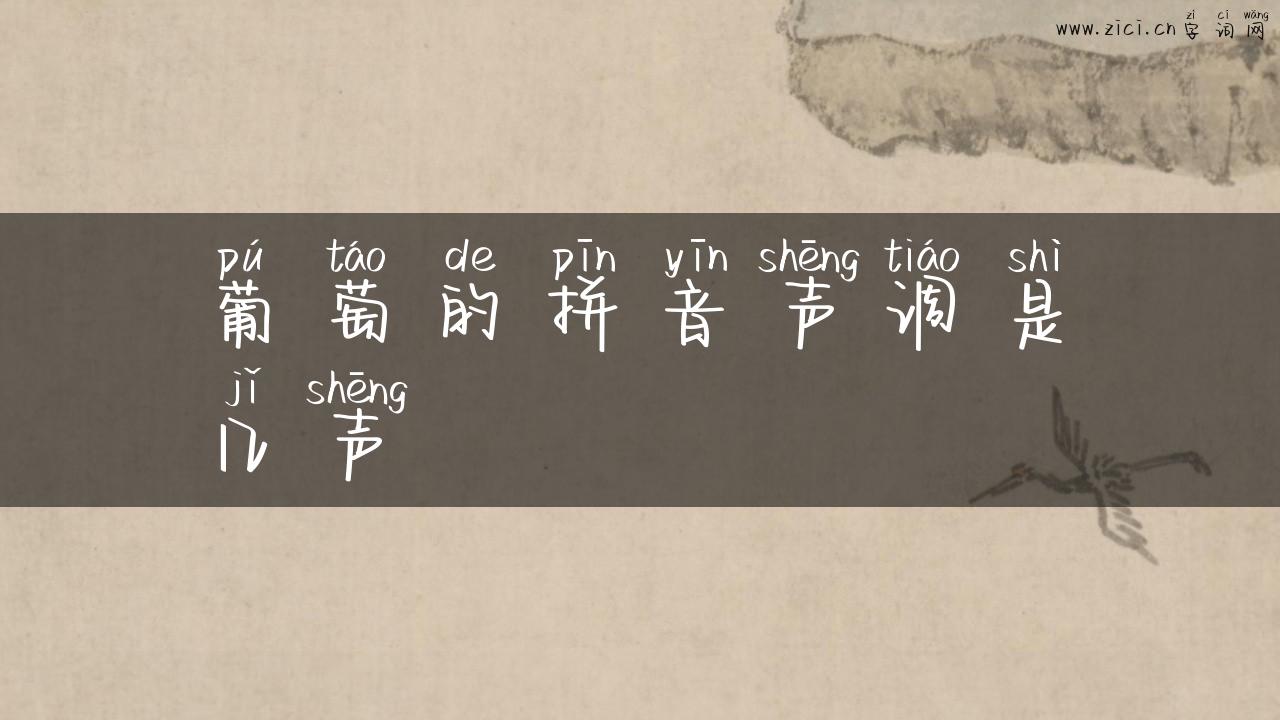 zì cí wǎng
www.zici.cn 字词网
pú táo de pīn yīn shēng tiáo shì
葡萄的拼音声调是
jǐ shēng
几声